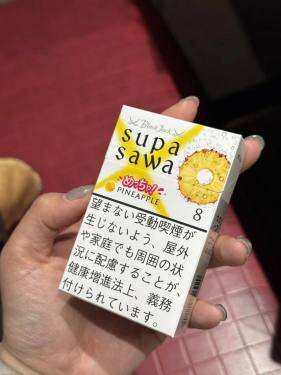 Black Jack
supa
sawa
めっちゃ!
PINEAPPLE
8
望まない受動喫煙が
生じないよう、屋外
や家庭でも周囲の状
況に配慮することが、
健康増進法上、義務
付けられています。